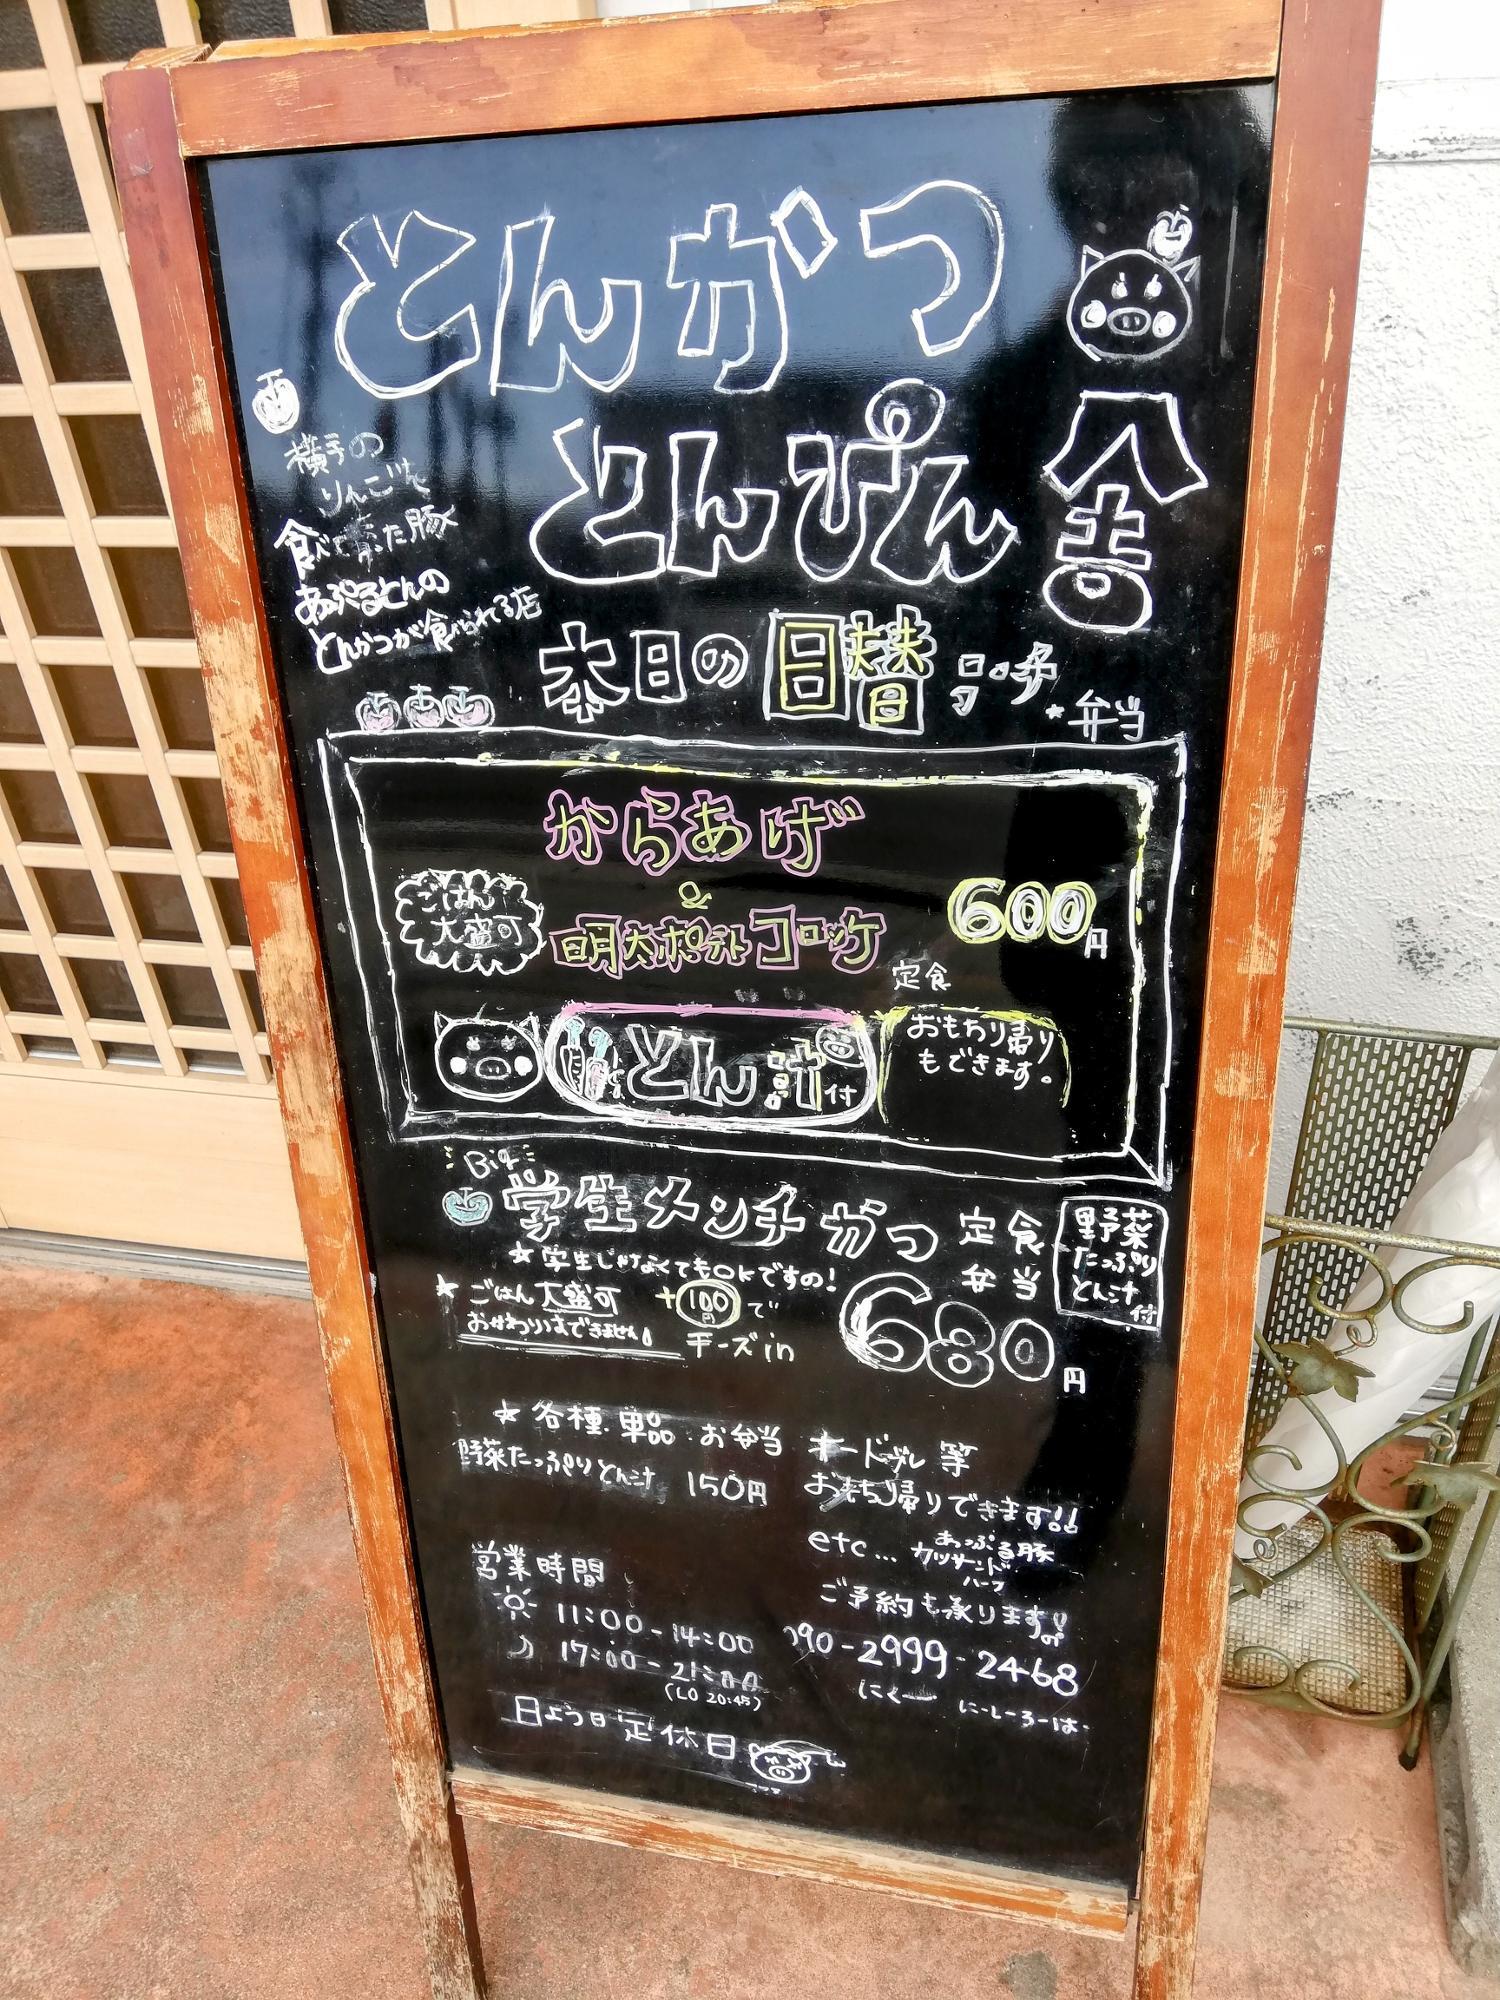 とんかつ
とんぴん
八吉
横手の
りんごを
食べて育った豚
あぷるとんの
とんかつが食べられる店
本日の日替
弁当
からあげ
&
明太ポテトコロッケ
600円
定食
ごはん
大盛可
とん汁付
おもち帰り
もできます。
Big
学生メンチガツ
定食
弁当
680円
野菜
たっぷり
とん汁
付
★学生じゃなくてもOKですの!
★ごはん大盛可
おかわりはできません。
+100円で
チーズin
★各種.単品.お弁当
オードブル等
野菜たっぷりとん汁 150円
おもち帰りできます!!
etc...
あっぷる豚
カツサンド
ハーフ
ご予約も承ります!
090-2999-2468
にく
にーしーろーは
営業時間
11:00-14:00
17:00-21:00
(LO 20:45)
日よう日定休日